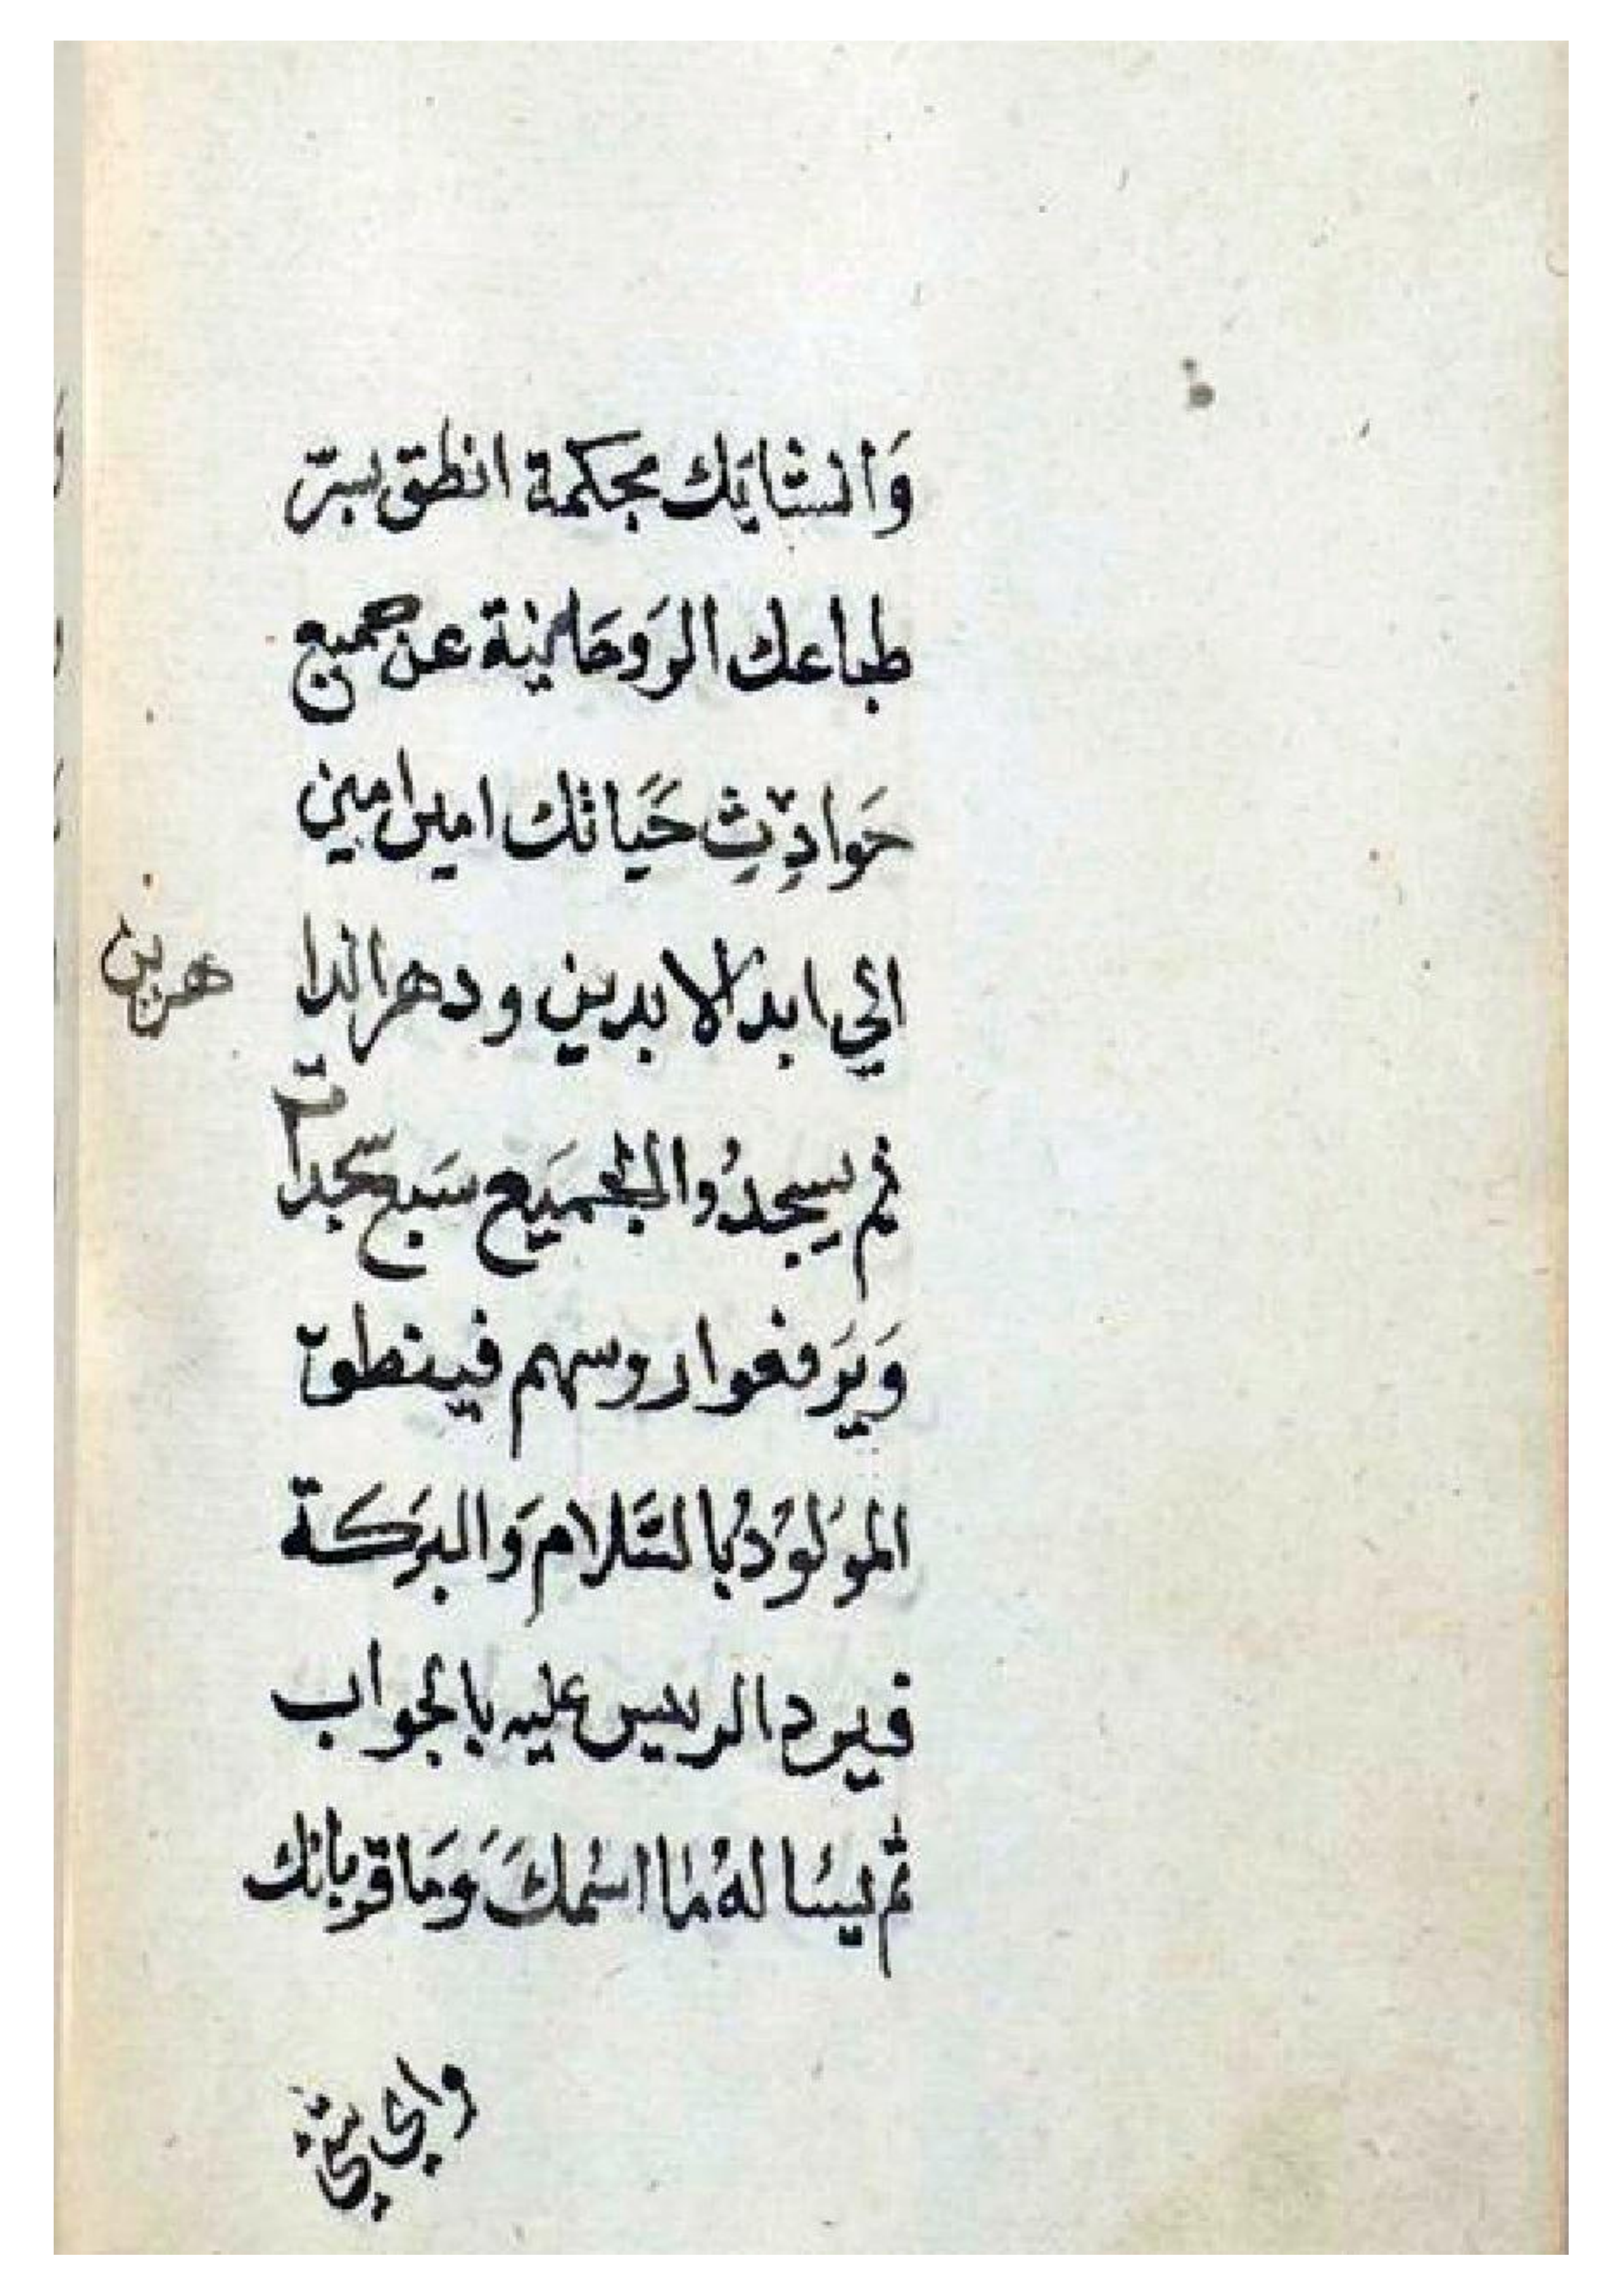 وَالشايَك بحكمة انطق بسرّ
طباعك الرَوحَانية عن جميع
حَوادِثِ حَيَاتك امين امين
الي ابد الابدين ودهر الدا
هرين
ثم يسجدُوا الجميَع سَبع سجدات
وَيَرفعوا روسهم فينطق
المَولوُدُ بالسَّلام وَالبرَكة
فيرد الرييس عليه بالجواب
ثم يسَالهُ ما اسمكَ وَمَا قربانك
واي شي